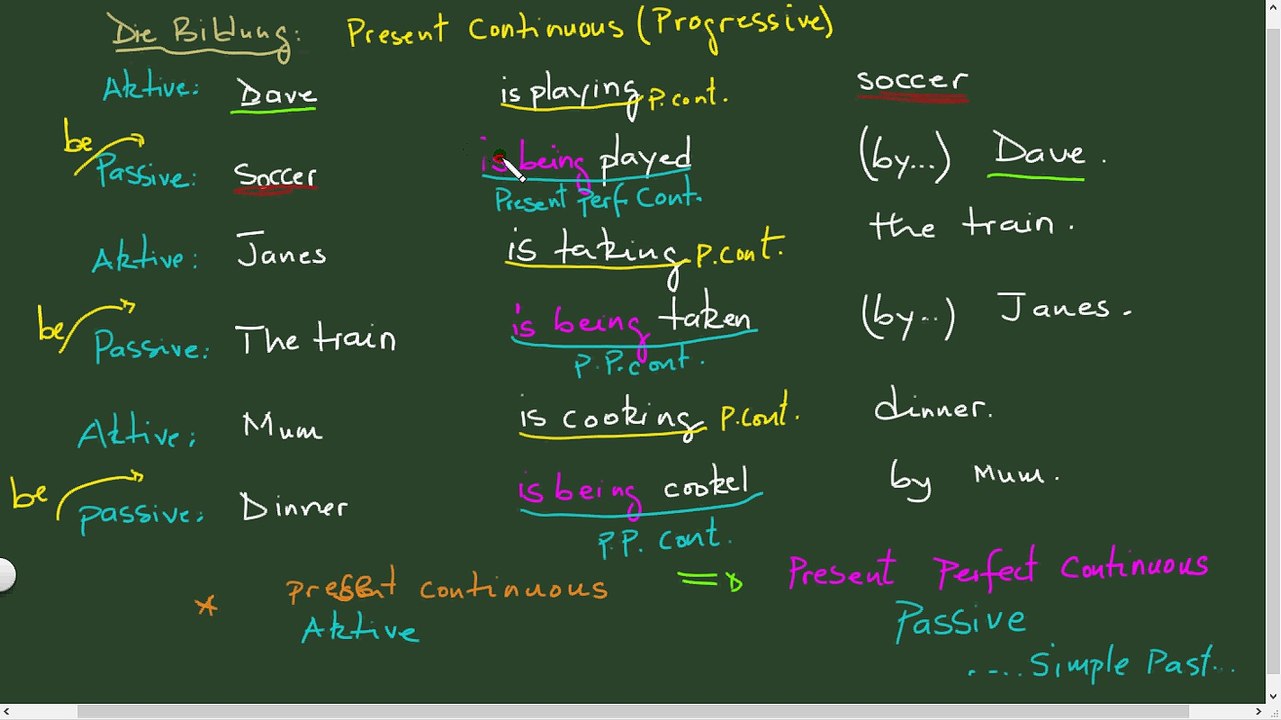 Die Bildung: Present Continuous (Progressive)
Aktive: Dave is playing P.cont. soccer
be
Passive: Soccer is being played (by...) Dave.
Present Perf Cont.
Aktive: Janes is taking P.cont. the train.
be
Passive: The train is being taken (by..) Janes.
P.P.cont.
Aktive: Mum is cooking P.cont. dinner.
be
passive: Dinner is being cookel by Mum.
P.P. cont.
* present continuous => Present Perfect Continuous
Aktive Passive
.... Simple Past...